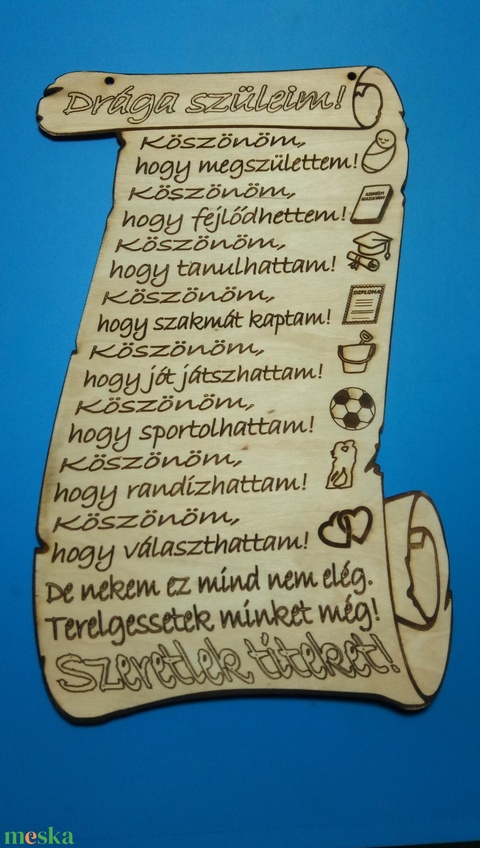 Drága szüleim!
Köszönöm,
hogy megszülettem!
Köszönöm,
hogy fejlődhettem!
Köszönöm,
hogy tanulhattam!
Köszönöm,
DIPLOMA
hogy szakmát kaptam!
Köszönöm,
hogy jót játszhattam!
Köszönöm,
hogy sportolhattam!
Köszönöm,
hogy randízhattam!
Köszönöm,
hogy választhattam!
De nekem ez mind nem elég.
Terelgessetek minket még!
Szeretlek titeket!
meska